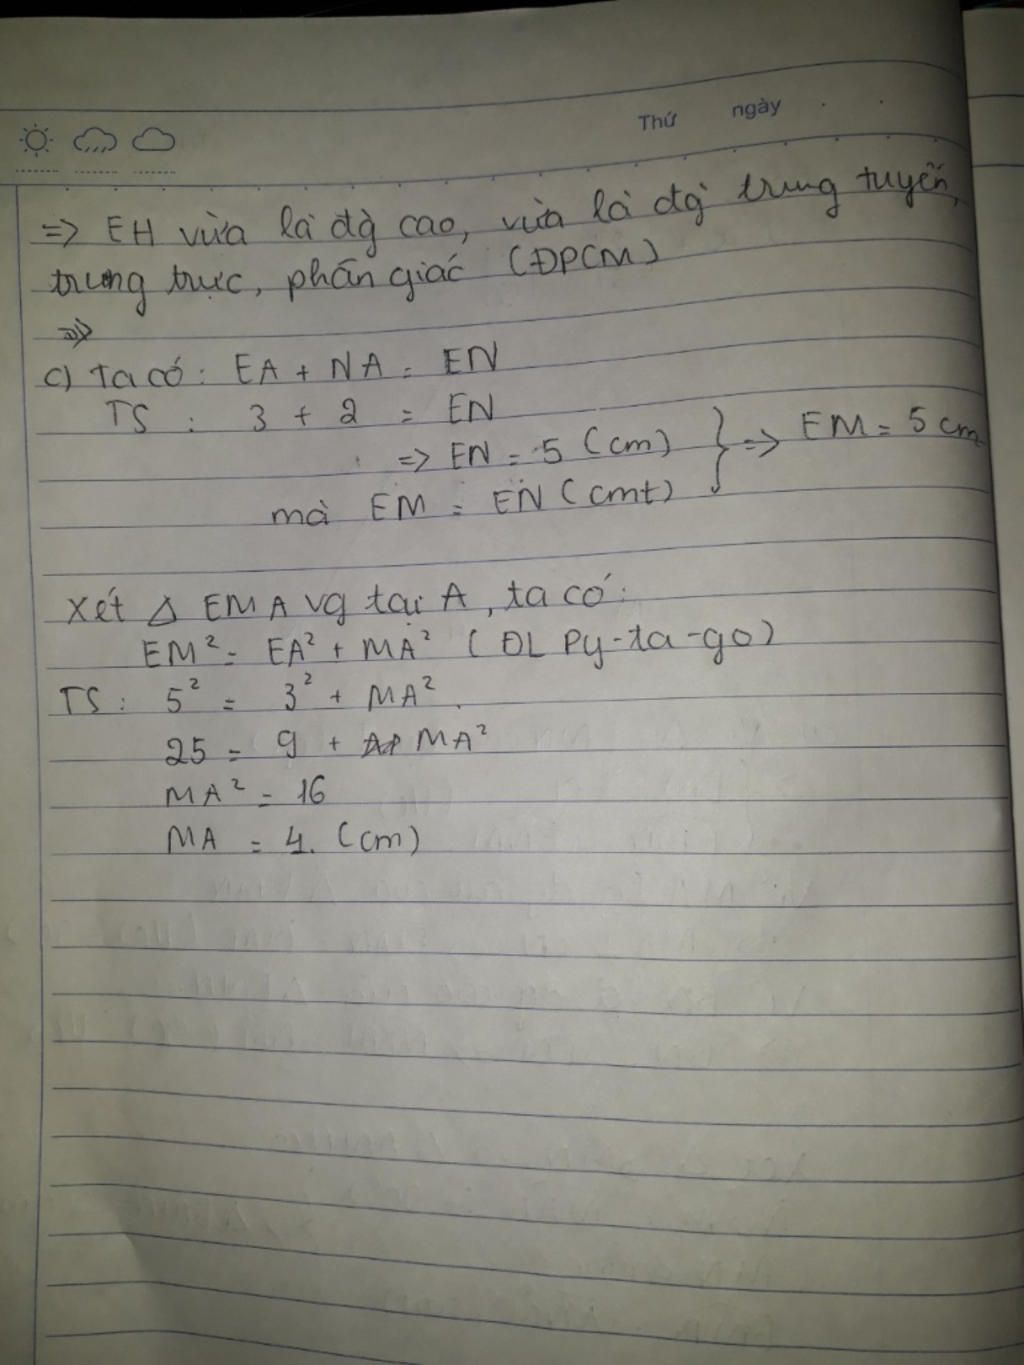 Thứ ngày
=> EH vừa là đg cao, vừa là đg trung tuyến,
trung trực, phân giác (ĐPCM)
=>
c) Ta có: EA + NA = EN
TS : 3 + 2 = EN
=> EN = 5 (cm) } => EM = 5 cm
mà EM = EN (cmt)
Xét Δ EMA vg tại A, ta có:
EM² = EA² + MA² (ĐL Py-ta-go)
TS: 5² = 3² + MA².
25 = 9 + MA²
MA² = 16
MA = 4. (cm)